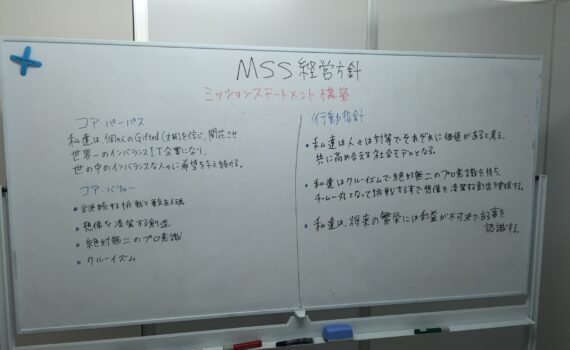 MSS 経営方針
ミッションステートメント構築
コア・パーパス
私達は個々人のGifted(才能)を信じ、開花させ
世界一のインバランスIT企業になり、
世の中のインバランスな人々に希望を与え続ける。
コア・バリュー
継続する挑戦と戦ある魂
想像を凌駕する創造
絶対無二のプロ意識
クルーイズム
行動指針
私達は人々は対等でそれぞれに価値があると考え、
共に高め合える社会モデルとなる。
私達はクルーイズムで絶対無二のプロ意識を持ち、
チーム一丸となって挑戦する事で想像を凌駕する創造を実現する。
私達は、将来の繁栄には利益が不可決である事を
認識する。